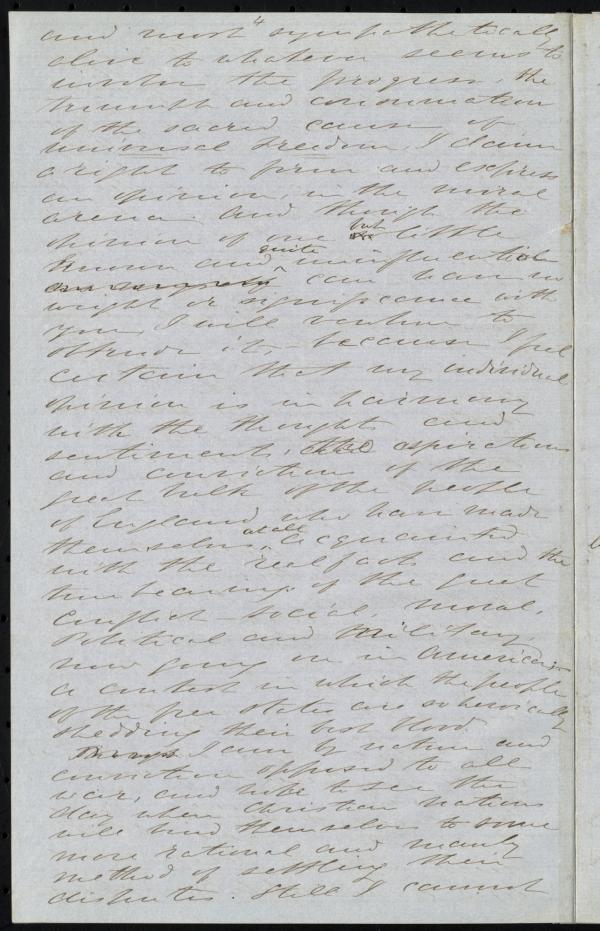 and most sympathetically
alive to whatever seems to
involve the progress, the
triumph and consummation
of the sacred cause of
universal freedom, I claim
a right to form and express
an opinion, in the moral
arena. and though the
opinion of one but little
known and quite uninfluential
can have no
weight or significance with
you, I will venture to
obtrude it, because I feel
certain that my individual
opinion is in harmony
with the thoughts and
sentiments, aspirations
and convictions of the
great bulk of the people
of England, who have made
themselves at all acquainted
with the real facts and the
true bearings of the great
conflict – social, moral,
political and military,
now going on in America in
a contest in which the people
of the free states are so heroically
shedding their best blood.
Though I am by nature and
conviction opposed to all
war, and hope to see the
day when Christian nations
will bind themselves to some
more rational and manly
method of settling their
disputes. Still I cannot